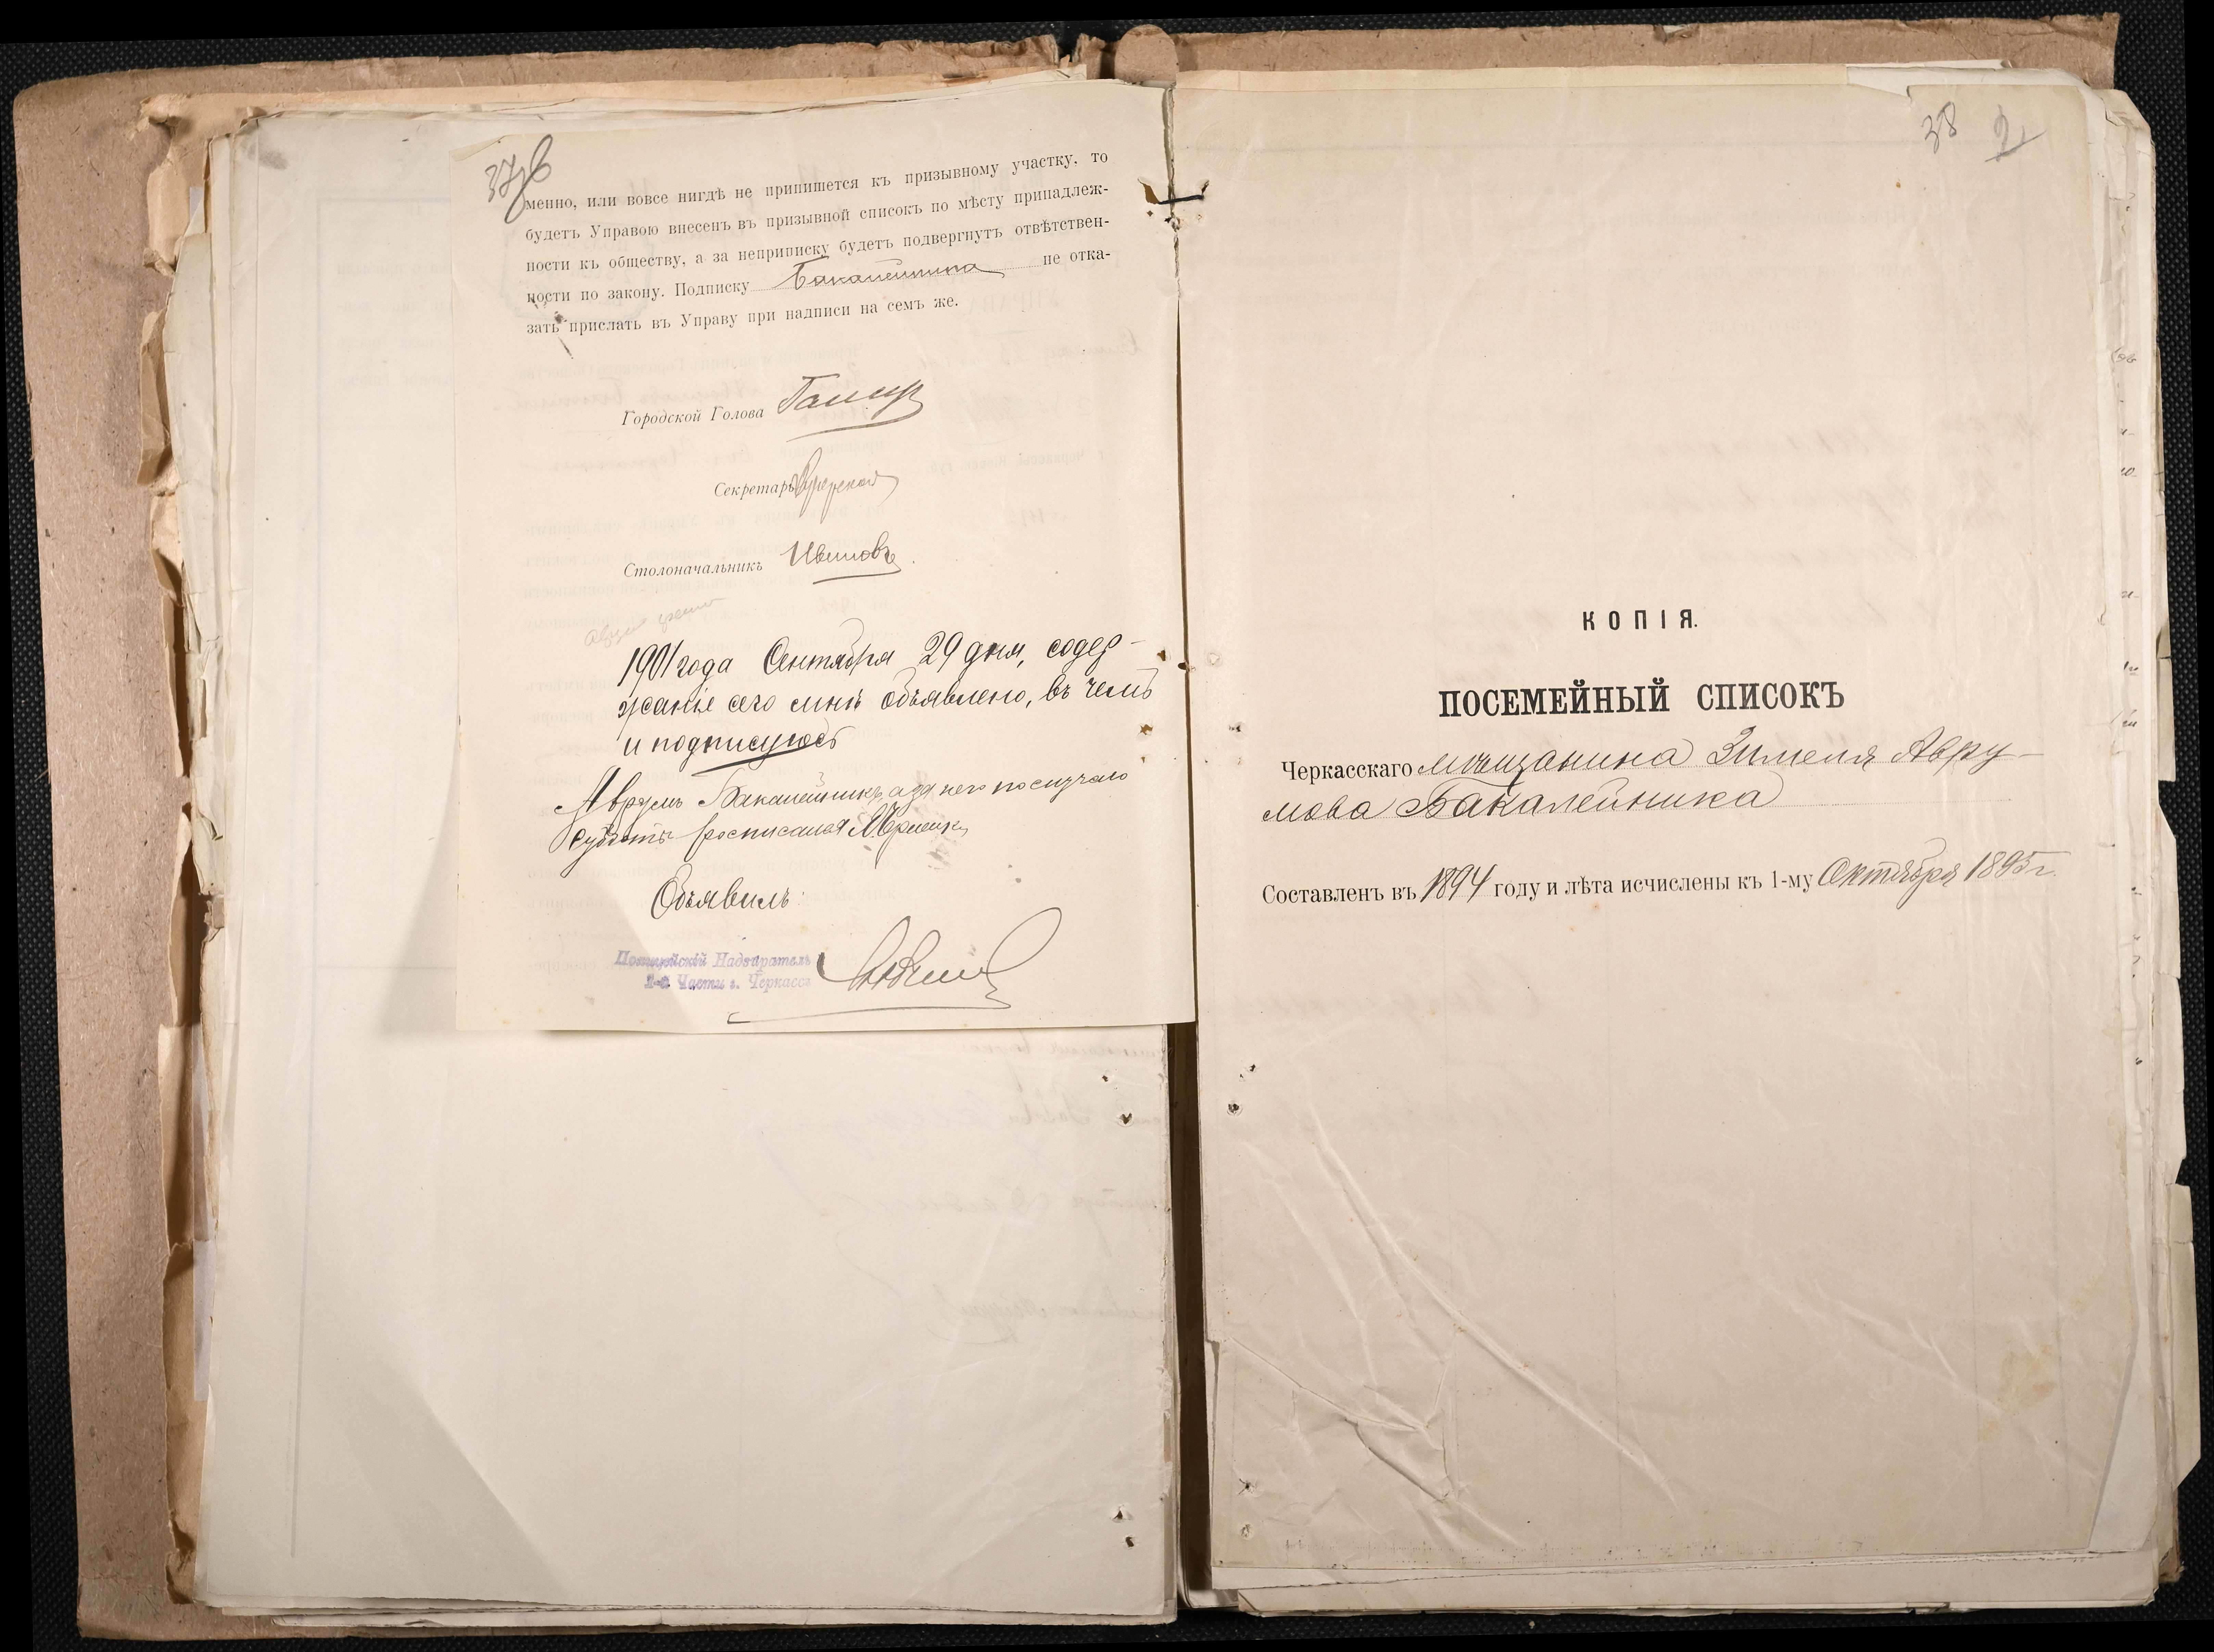 38 2
менно, или вовсе нигдѣ не припишется къ призывному участку, то
будетъ Управою внесенъ въ призывной списокъ по мѣсту принадлеж-
ности къ обществу, а за неприписку будетъ подвергнутъ отвѣтствен-
ности по закону. Подписку Бакалейника не отка-
зать прислать въ Управу при надписи на семъ же.
Городской Голова
Секретарь
Столоначальникъ Ивановъ
1901 года Сентября 29 дня, содер-
жаніе сего мнѣ объявлено, въ чемъ
и подписуюсь
Аврумъ Бакалейникъ, а за него по случаю
субботы росписался
Объявилъ:
Полицейскій Надзиратель
2-й Части г. Черкассъ
КОПІЯ.
ПОСЕМЕЙНЫЙ СПИСОКЪ
Черкасскаго мѣщанина Зимеля Авру-
мова Бакалейника
Составленъ въ 1894 году и лѣта исчислены къ 1-му Октября 1895 г.